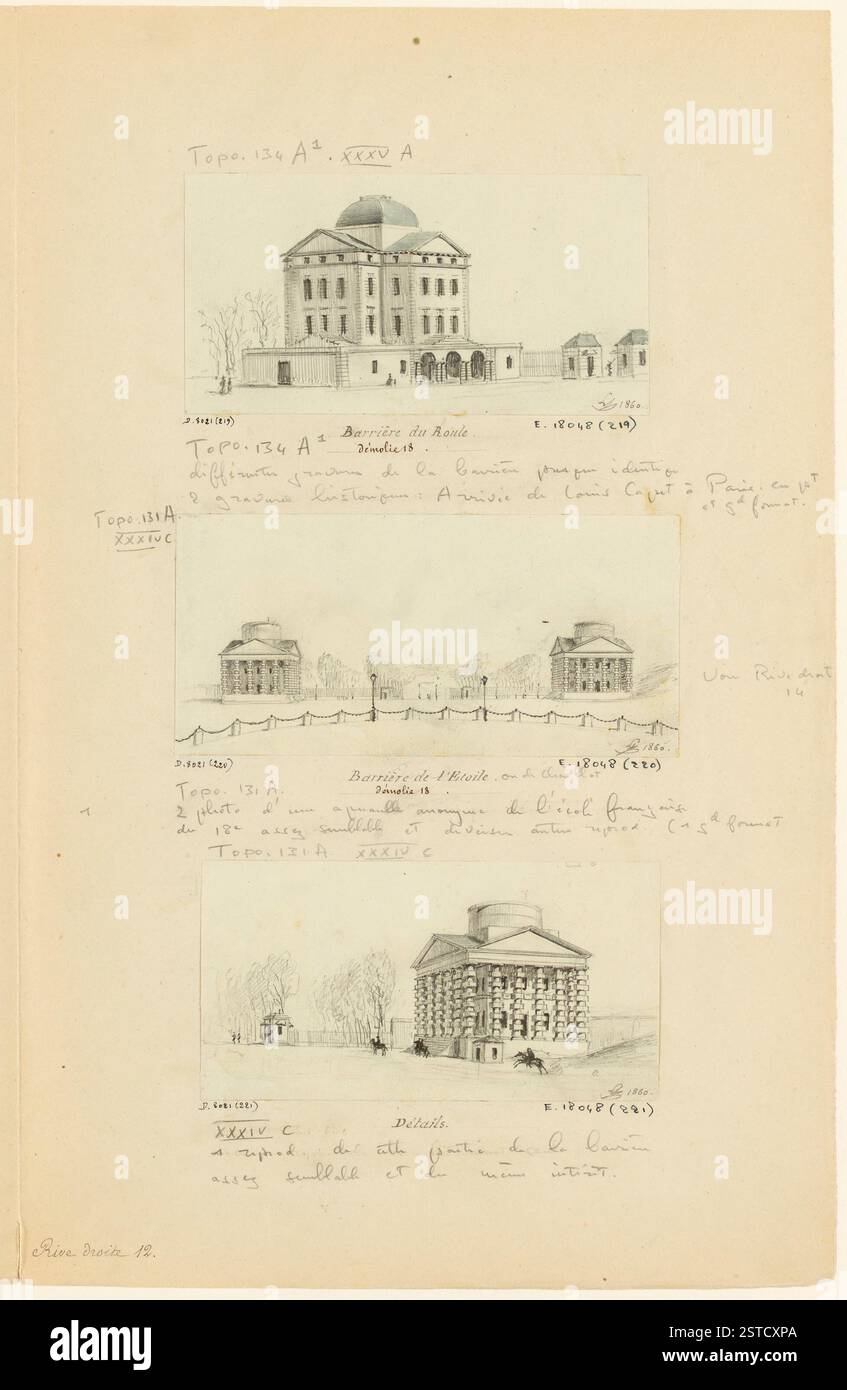 Topo. 134 A¹. XXXV A
1860.
D. 8021 (219)
E. 18048 (219)
Barrière du Roule.
démolie 18 .
Topo. 134 A¹
différentes gravures de la barrière presque identique
2 gravures historiques : Arrivée de Louis Capet à Paris. en pt
et gd format.
Topo. 131 A.
XXXIV C
Voir Rive droite
14
1860.
D. 8021 (220)
E. 18048 (220)
Barrière de l'Etoile. ou de Chaillot
démolie 18 .
Topo. 131 A.
1
2 photo d'une aquarelle anonyme de l'école française
du 18e assez semblable et diverses autres reprod. (1 gd format
Topo. 131 A XXXIV C
1860.
D. 8021 (221)
E. 18048 (221)
Détails.
XXXIV C
1 reprod. de cette partie de la barrière
assez semblable et du même intérêt.
Rive droite 12.
alamy
Image ID: 2STCXPA
www.alamy.com